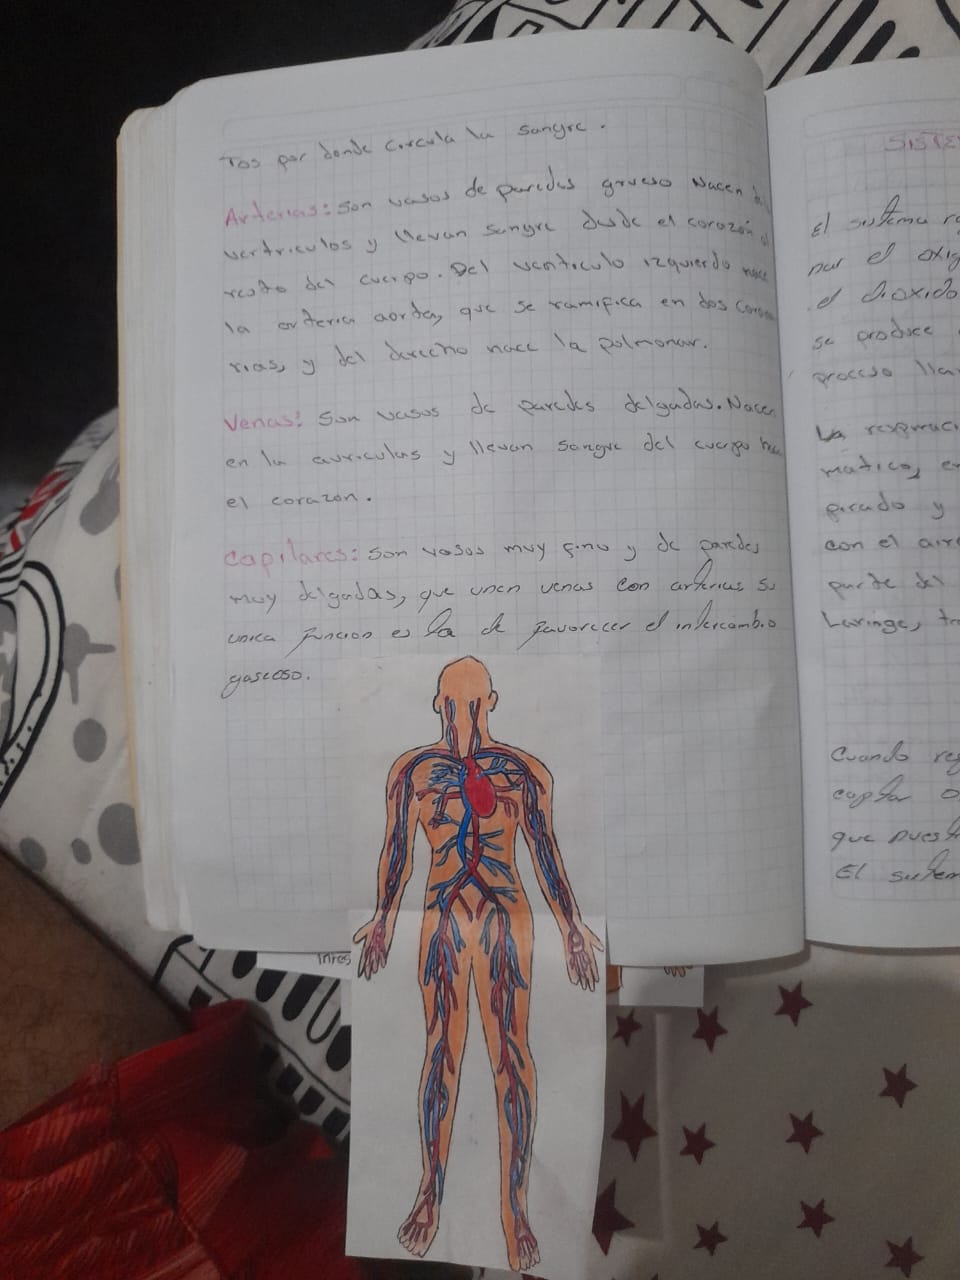 Tos por donde circula la sangre.
Arterias: Son vasos de paredes grueso Nacen
ventriculos y llevan sangre desde el corazón al
resto del cuerpo. Del venticulo izquierdo nace
la arteria aorta, que se ramifica en dos corona
rias, y del derecho nace la pulmonar.
Venas: Son vasos de paredes delgadas. Nacen
en la auriculas y llevan sangre del cuerpo
el corazón.
Capilares: Son vasos muy fino y de paredes
muy delgadas, que unen venas con arterias su
unica funcion es la de favorecer el intercambio
gaseoso.
Intes
SISTE
El sistema
por el
el dioxido
se produce
proceso
La
matico,
pirado y
con el aire
parte del
Laringe,
Cuando
captar
que
El